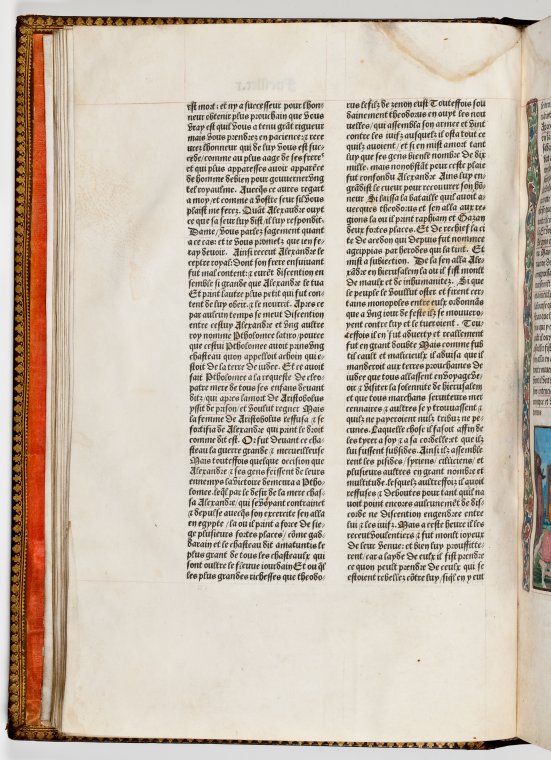 est mort: et ny a successeur pour lhon/
neur obtenir plus prouchain que vous
vray est quil vous a tenu grãt rigueur
mais vous prendrez en pacience: ⁊ rece
vrez lhonneur qui de luy vous est suc⸗
cede/comme au plus aage de ses frerẽ
et qui plus apparesse avoir apparẽce
de homme debien pour gouverner vng
tel royaulme. Avecq̃s ce avrez regart
a moy/et comme a vostre seur sil vous
plaist me ferez. Quãt Alexandre ouyt
ce que sa seur luy dist il luy respondit.
Dame/vous parlez sagement quant
a ce cas: et ie vous prometz que ien fe⸗
ray devoir. Ainsi receut Alexandre le
ceptre royal: dont son frere ensuivant
fut mal content: ⁊ eurẽt discention en
semble si grande que Alexandre le tua
Et paint lautre plus petit qui fut con⸗
tent de luy obeir: ⁊ le nourrit. Apres ce
par aulcun temps se meut discention
entre cestuy Alexandre et vng aultre
roy nomme Ptholomee latiro/pource
que cestui Ptholomee avoit prins vng
chasteau quon appelloit
stoit de la terre de iudee. Et ce avoit
fait Ptholomee a la requeste de cleo⸗
patre mere de tous ses enfans devant
ditz: qui apres la mort de Aristobolus
yssit de prison/et voulut regner Mais
la femme de Aristobolus reffusa/⁊ se
fortifia de Alexandre qui print le droit
comme dit est. Or fut devant ce cha⸗
steau la guerre grande ⁊ merveilleuse
Mais touteffois quelque occision que
Alexandre ⁊ ses gens feissent de leurs
ennemys la victoire demeura a Ptho⸗
lomee. leq̃l par le desir de la mere chas⸗
sa Alexandre/qui se voyant contrainct
⁊ depulse avecq̃s son excercite sen alla
en egypte/la ou il print a force de sie⸗
ge plusieurs fortes places/cõme gad⸗
darain et le chasteau dit amatuntis le
plus grant de tous les chasteaulx qui
sont oultre le fleuve iourdain Et ou q̃l
les plus grandes richesses que theodo⸗
rus le filz de zenon eust Touteffois sou
dainement theodorus en ouyt les nou
velles/qui assembla son armee et vint
contre les iuifz ausquelz il osta tout ce
quilz avoient/et si en mist a mort tant
luy que ses gens bien le nombre de dix
mille. mais nonobstãt pour ceste plaie
fut confondu Alexandre Ains luy en⸗
grãdist le cueur pour recouvrer son hõ⸗
neur Si laissa la bataille quil avoit a⸗
vecques theodorus et sen alla aux re⸗
gions la ou il print raphiam et Gazan
deux fortes places. Et de rechief la ci
te de qui depuis fut nommee
agrippias par herodes qui la tint. Et
mist a subiection. De la sen alla Ale⸗
xãdre en hierusalem la ou il fist moult
de maulx et de inhumanitez. Si que
le peuple se voullut oster et firent cer⸗
tains monopoles entre eulx ordonnãs
que a vng iour de feste ilz se mouvero⸗
yent contre luy et le tueroient. Tou⸗
teffois il en fut adverty et reallement
fut en grant doubte Mais comme sub
til cault et malicieulx il advisa que il
manderoit aux terres prouchaines de
iudee que tous allassent en voyage de⸗
oir ⁊ visiter la solennite de hierusalem
et que tous marchans serviteurs mer
cennaires ⁊ aultres se y trouvassent/⁊
quilz ne payeroient nulz tribuz ne pe⸗
cunes. Laquelle chose il faisoit affin de
les tyrer a soy ⁊ a sa cordelle ⁊ et que ilz
luy fussent subsides. Ainsi ilz assemble
rent les pisides/syriens/cilliciens/et
plusieurs aultres en grant nombre et
multitude. lesquelz aultreffois il avoit
reffuses ⁊ deboutes pour tant quil na
voit point encores aulcunemẽt de dis⸗
corde ne discention engendree entre
lui ⁊ les iuifz. Mais a ceste heure il les
receut voulentiers ⁊ fut moult ioyeux
de leur venue: et bien luy prouffite⸗
rent/car a layde de eulx il fist prendre
ce quon peult prendre de ceulx qui se
estoient rebellez cõtre luy/siq̃l en y eut